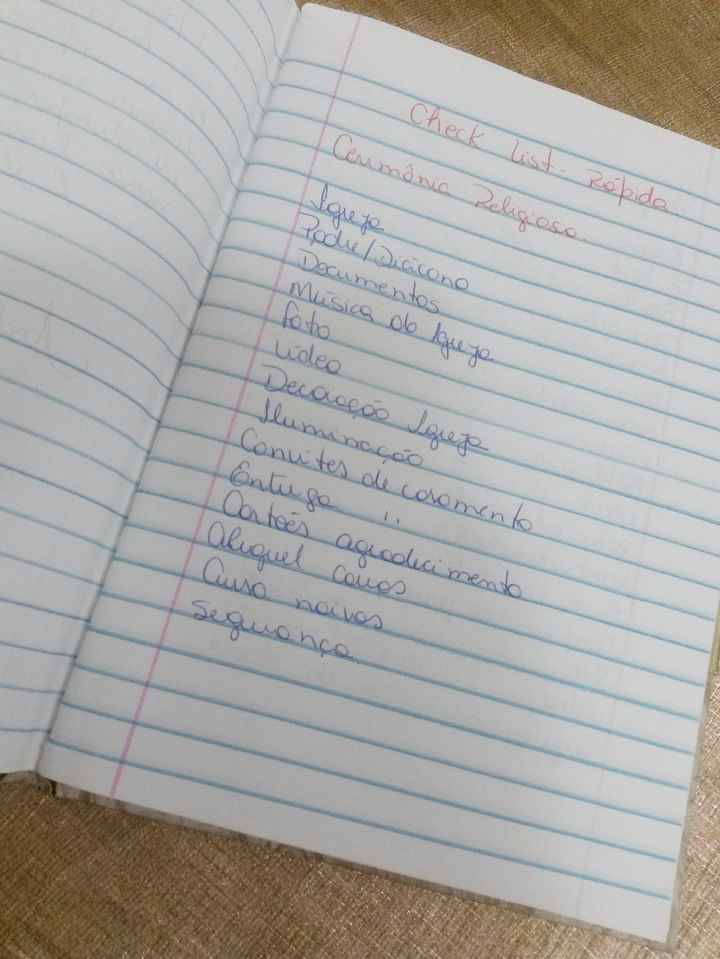 Check List - Rápida.
Cerimônia Religiosa.
Igreja
Padre/Diácono
Documentos
Música da Igreja
foto
vídeo
Decoração Igreja
Iluminação
Convites de casamento
Entrega "
Cartões agradecimento
Aluguel carros
Curso noivos
Segurança